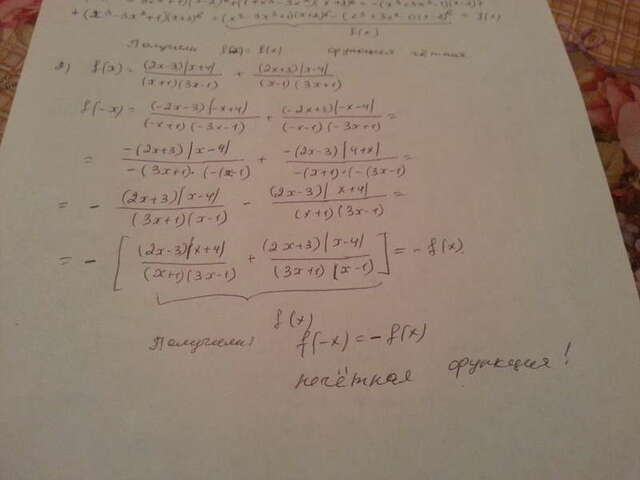 Получили f(-x) = f(x) функция чётная
2) f(x) = (2x-3)|x+4| / (x+1)(3x-1) + (2x+3)|x-4| / (x-1)(3x+1)
f(-x) = (-2x-3)|-x+4| / (-x+1)(-3x-1) + (-2x+3)|-x-4| / (-x-1)(-3x+1) =
= -(2x+3)|x-4| / -(3x+1)·(-(x-1) + -(2x-3)|4+x| / -(x+1)·(-(3x-1) =
= - (2x+3)|x-4| / (3x+1)(x-1) - (2x-3)|x+4| / (x+1)(3x-1) =
= - [ (2x-3)|x+4| / (x+1)(3x-1) + (2x+3)|x-4| / (3x+1)(x-1) ] = - f(x)
f(x)
Получили: f(-x) = - f(x)
нечётная функция!